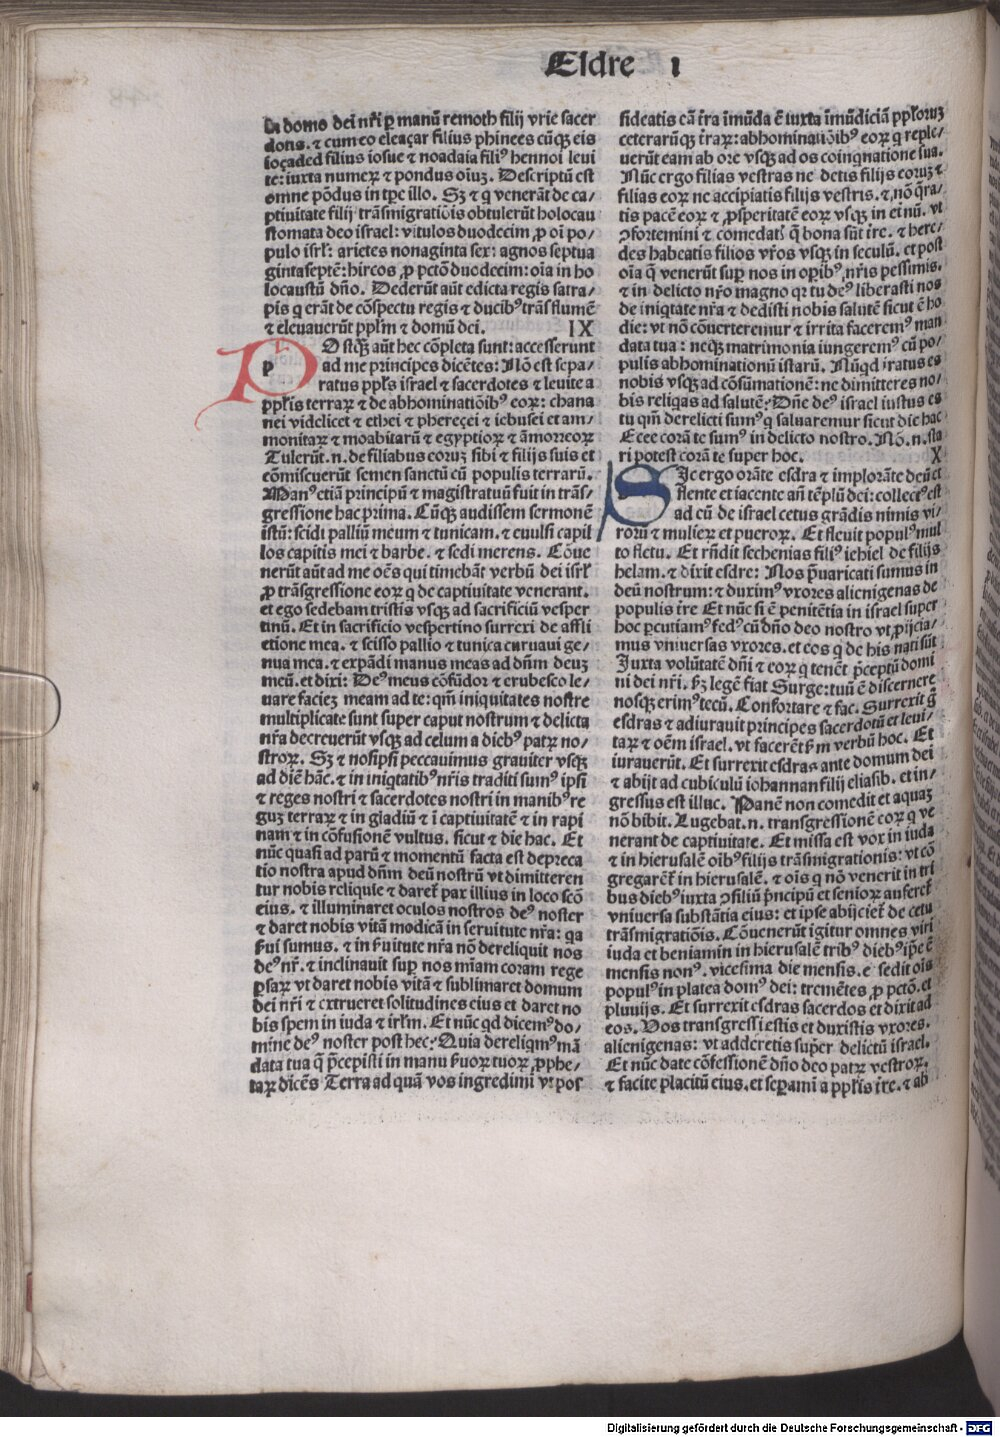 Esdre I
In domo dei nr̄i ꝑ manū remoth filij vrie sacer
dotis. ⁊ cum eo eleaçar filius phinees cūqꝫ eis
ioçaded filius iosue ⁊ noadaia fili⁹ hennoi leui
te: iuxta numeꝝ ⁊ pondus oīuꝫ. Descriptū est
omne põdus in tꝑe illo. Sꝫ ⁊ q venerāt de ca/
ptiuitate filij trãsmigratiõis obtulerūt holocau
stomata deo israel: vitulos duodecim ꝓ oī po/
pulo isrl̄: arietes nonaginta sex: agnos septua
gintaseptē: hircos ꝓ pctō duodecim: oīa in ho
locaustū dño. Dederūt aūt edicta regis satra/
pis q erāt de cõspectu regis ⁊ ducib⁹ trãs flumē
⁊ eleuauerūt ppl̄m ⁊ domū dei. IX
POstqꝫ aūt hec cõpleta sunt: accesserunt
ad me principes dicētes: Nõ est sepa/
ratus ppl̄s israel ⁊ sacerdotes ⁊ leuite a
ppl̄is terraꝝ ⁊ de abhominatiõib⁹ eoꝝ: chana
nei videlicet ⁊ ethei ⁊ phereçei ⁊ iebusei et am/
monitaꝝ ⁊ moabitarū ⁊ egyptioꝝ ⁊ āmorreoꝝ
Tulerūt .n. de filiabus eoruꝫ sibi ⁊ filijs suis et
cõmiscuerūt semen sanctū cū populis terrarū.
Man⁹ etiā principū ⁊ magistratuū fuit in trãs/
gressione hac prima. Cūqꝫ audissem sermonē
istū: scidi palliū meum ⁊ tunicam. ⁊ euulsi capil
los capitis mei ⁊ barbe. ⁊ sedi merens. Cõue
nerūt aūt ad me oēs qui timebāt verbū dei isrl̄
ꝓ trãsgressione eoꝝ q de captiuitate venerant.
et ego sedebam tristis vsqꝫ ad sacrificiū vesper
tinū. Et in sacrificio vespertino surrexi de affli
ctione mea. ⁊ scisso pallio ⁊ tunica curuaui ge/
nua mea. ⁊ expãdi manus meas ad dñm deuꝫ
meū. et dixi: De⁹ meus cõfūdor ⁊ erubesco le/
uare facieꝫ meam ad te: qm̄ iniquitates nostre
multiplicate sunt super caput nostrum ⁊ delicta
nr̄a decreuerūt vsqꝫ ad celum a dieb⁹ patꝝ no/
stroꝝ. Sꝫ ⁊ nosipsi peccauimus grauiter vsqꝫ
ad diē hāc. ⁊ in iniqtatib⁹ nr̄is traditi sum⁹ ipsi
⁊ reges nostri ⁊ sacerdotes nostri in manib⁹ re
guꝫ terraꝝ ⁊ in gladiū ⁊ ī captiuitatē ⁊ in rapi
nam ⁊ in cõfusionē vultus. sicut ⁊ die hac. Et
nūc quasi ad parū ⁊ momentū facta est depreca
tio nostra apud dñm deū nostrū vt dimitteren
tur nobis reliquie ⁊ daret̄ pax illius in loco scō
eius. ⁊ illuminaret oculos nostros de⁹ noster
⁊ daret nobis vitā modicā in seruitute nr̄a: qa
ẜui sumus. ⁊ in ẜuitute nr̄a nō dereliquit nos
de⁹ nr̄. ⁊ inclinauit suꝑ nos mīam coram rege
ꝑsaꝝ vt daret nobis vitā ⁊ sublimaret domum
dei nr̄i ⁊ extrueret solitudines eius et daret no
bis spem in iuda ⁊ irl̄m. Et nūc qd dicem⁹ do/
mine de⁹ noster post hec? Quia dereliqm⁹ mā
data tua q p̄cepisti in manu ẜuoꝝ tuoꝝ ꝓphe/
taꝝ dicēs Terra ad quā vos ingredimi vt pos
sideatis eā t̄ra īmūda ē iuxta īmūdiciā ppl̄oruꝫ
ceterarūqꝫ t̄raꝝ: abhominatiõib⁹ eoꝝ q reple/
uerūt eam ab ore vsqꝫ ad os coinqnatione sua.
Nūc ergo filias vestras ne detis filijs eoruꝫ ⁊
filias eoꝝ ne accipiatis filijs vestris. ⁊ nō q̄ra/
tis pacē eoꝝ ⁊ ꝓsperitatē eoꝝ vsqꝫ in et̄nū. vt
ꝯfortemini ⁊ comedat̄ q bona sūt t̄re. ⁊ here/
des habeatis filios vr̄os vsqꝫ in seculū. et post
oīa q venerūt suꝑ nos in oꝑib⁹ nr̄is pessimis.
⁊ in delicto nr̄o magno qꝛ tu de⁹ liberasti nos
de iniqtate nr̄a ⁊ dedisti nobis salutē sicut ē ho
die: vt nō cõuerteremur ⁊ irrita facerem⁹ man
data tua: neqꝫ matrimonia iungerem⁹ cū po/
pulis abhominationū istarū. Nūqd iratus es
nobis vsqꝫ ad cõsūmationē: ne dimitteres no/
bis reliqas ad salutē? Dñe de⁹ israel iustus es
tu qm̄ derelicti sum⁹ q saluaremur sicut die hac
Ecce corā te sum⁹ in delicto nostro. Nō .n. sta
ri potest corā te super hoc. X
SIc ergo orāte esdra ⁊ implorāte deū et
flente et iacente añ tēplū dei: collect⁹ est
ad eū de israel cetus grādis nimis vi/
rorū ⁊ mulieꝝ et pueroꝝ. Et fleuit popul⁹ mul
to fletu. Et rñdit sechenias fili⁹ iehiel de filijs
helam. ⁊ dixit esdre: Nos p̄uaricati sumus in
deū nostrum: ⁊ duxim⁹ vxores alienigenas de
populis t̄re Et nūc si ē penitētia in israel super
hoc ꝑcutiam⁹ fed⁹ cū dño deo nostro vt ꝓijcia/
mus vniuersas vxores. et eos q de his nati sūt
Juxta volūtatē dñi ⁊ eoꝝ q tenēt p̄ceptū domi
ni dei nr̄i. ẜꝫ legē fiat Surge: tuū ē discernere
nosqꝫ erim⁹ tecū. Confortare ⁊ fac. Surrexit g̊
esdras ⁊ adiurauit principes sacerdotū et leui/
taꝝ ⁊ oēm israel. vt facerēt ẜm verbū hoc. Et
iurauerūt. Et surrexit esdras ante domum dei
⁊ abijt ad cubiculū iohannan filij eliasib. et in/
gressus est illuc. Panē non comedit et aquaꝫ
nō bibit. Lugebat .n. transgressionē eoꝝ q ve
nerant de captiuitate. Et missa est vox in iuda
⁊ in hierusalē oīb⁹ filijs trãsmigrationis: vt cō
gregarēt̄ in hierusalē. ⁊ oīs q nō venerit in tri
bus dieb⁹ iuxta ꝯsiliū p̄ncipū et senioꝝ auferet̄
vniuersa substātia eius: et ipse abijciet̄ de cetu
trãsmigratiõis. Cõuenerūt igitur omnes viri
iuda et beniamin in hierusalē trib⁹ dieb⁹ ip̄e ē
mensis non⁹. vicesima die mensis. e sedit oīs
popul⁹ in platea dom⁹ dei: tremētes ꝓ pctō. et
pluuijs. Et surrexit esdras sacerdos et dixit ad
eos. Vos transgressi estis et duxistis vxores.
alienigenas: vt adderetis suꝑ delictū israel.
Et nūc date cõfessionē dño deo patꝝ vestroꝝ.
⁊ facite placitū eius. et seꝑamī a ppl̄is t̄re. ⁊ ab
Digitalisierung gefördert durch die Deutsche Forschungsgemeinschaft - DFG